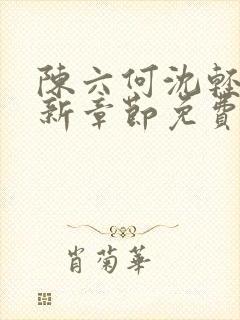 陳六何沈輕
新章節免費
肖菊華